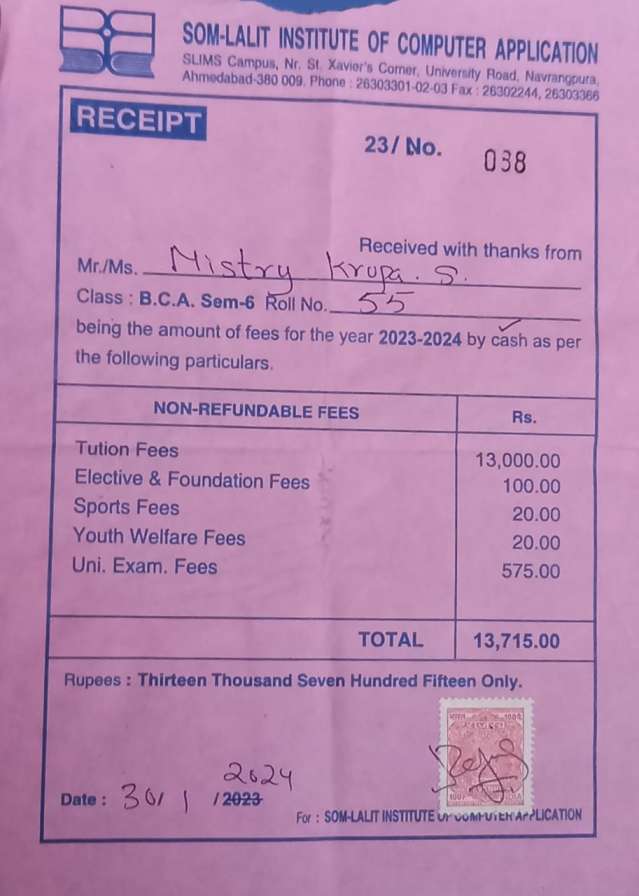 SOM-LALIT INSTITUTE OF COMPUTER APPLICATION
SLIMS Campus, Nr. St. Xavier's Corner, University Road, Navrangpura,
Ahmedabad-380 009. Phone : 26303301-02-03 Fax : 26302244, 26303366
RECEIPT
23/ No. 038
Received with thanks from
Mr./Ms. Mistry Krupa. S.
Class : B.C.A. Sem-6 Roll No. 55
being the amount of fees for the year 2023-2024 by cash as per
the following particulars.
NON-REFUNDABLE FEES Rs.
Tution Fees 13,000.00
Elective & Foundation Fees 100.00
Sports Fees 20.00
Youth Welfare Fees 20.00
Uni. Exam. Fees 575.00
TOTAL 13,715.00
Rupees : Thirteen Thousand Seven Hundred Fifteen Only.
2024
Date : 30/ 1 /2023
For : SOM-LALIT INSTITUTE OF COMPUTER APPLICATION